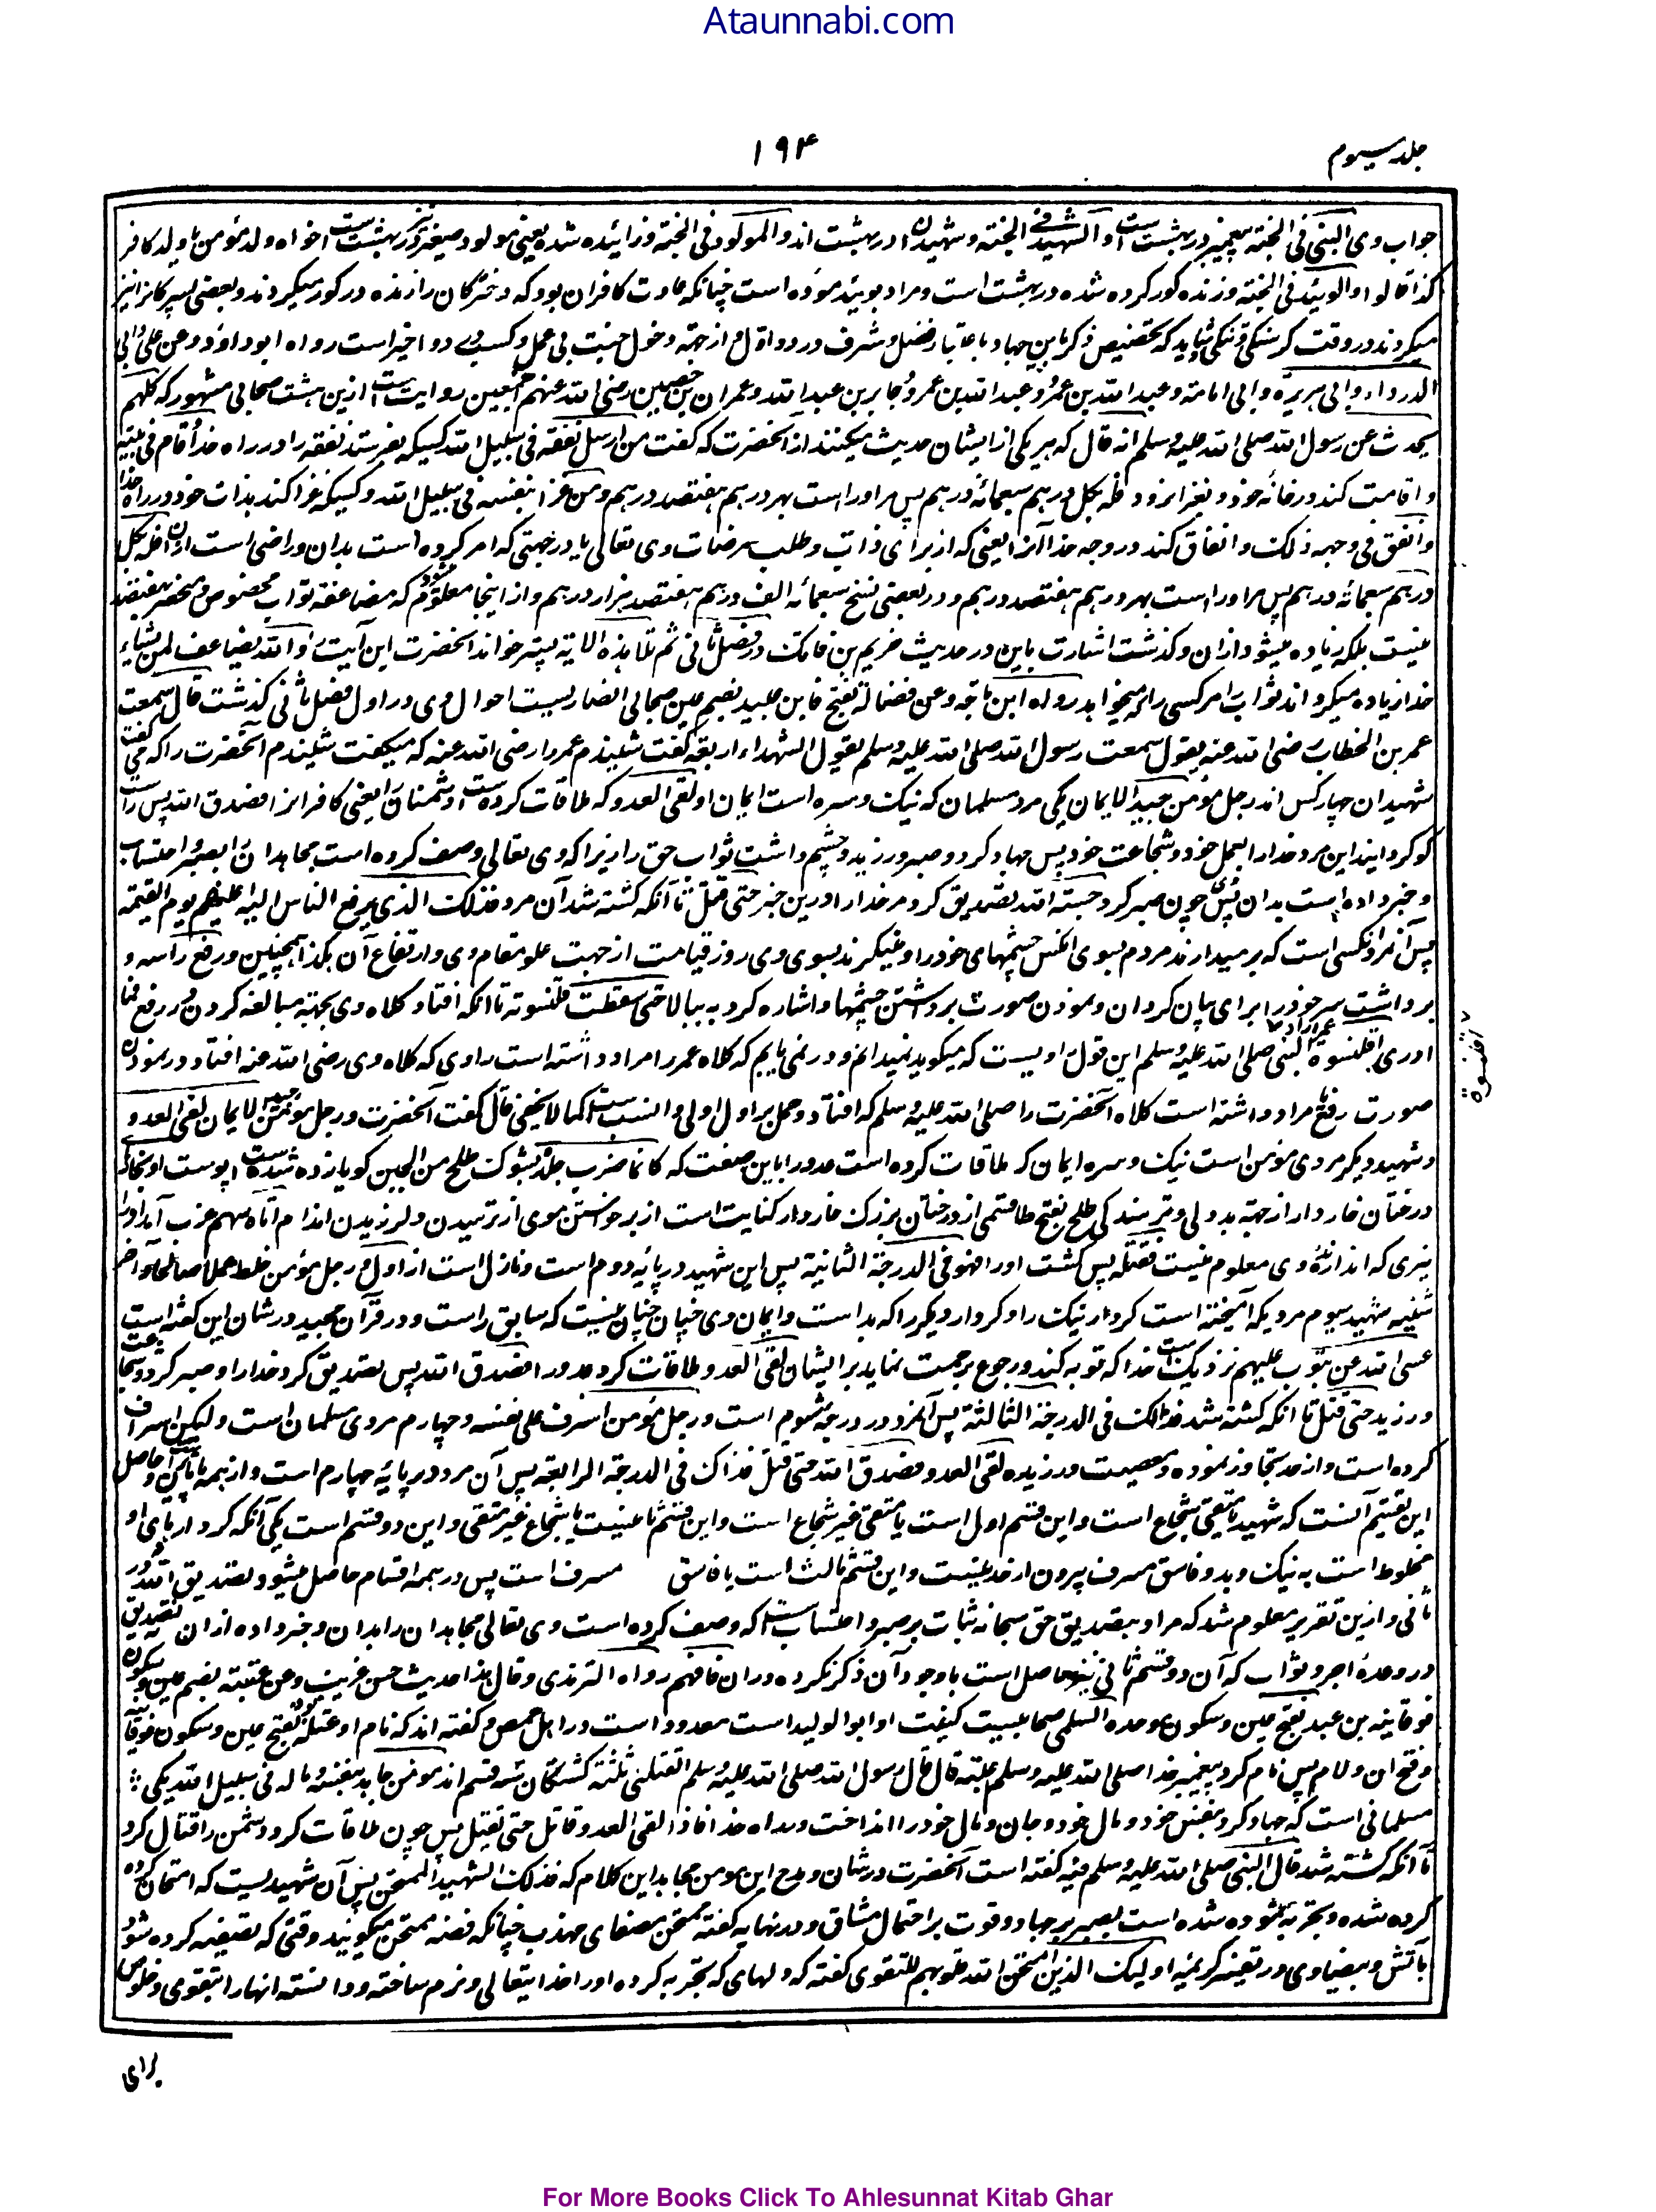 Ataunnabi.com
جلد سیوم
۱۹۴
جواب وی النبی فی الجنة پیغمبر در بهشت است و الشهید فی الجنة و شهیدان در بهشت اند و المولود فی الجنة و زائیده شده یعنی مولود صغیر نیز در بهشت است خواه ولد مؤمن یا ولد کافر
کذا قالوا و الوئید فی الجنة و زنده کور کرده شده در بهشت است و مراد بوئید موؤده است چنانکه عادت کافران بود که دخترگان را زنده در کور میکردند و بعضی پسرکان را نیز
میکردند در وقت کرسنگی و تنگی شاید که تخصیص ذکر باین چهار باعتبار فضل و شرف در دو اول و از جهة دخول جنت بی عمل و کسب در دو اخیر است رواه ابو داؤد و عن علی و ابی
الدرداء و ابی هریرة و ابی امامة و عبد الله بن عمر و عبد الله بن عمرو و جابر بن عبد الله و عمران بن حصین رضی الله عنهم اجمعین روایت است ازین هشت صحابی مشهور که کلهم
یحدث عن رسول الله صلی الله علیه وسلم انه قال که هر یکی از ایشان حدیث میکنند از آنحضرت که گفت من ارسل نفقة فی سبیل الله کسیکه بفرستد نفقه را در راه خدا و اقام فی بیته
و اقامت کند در خانه خود و بغزا نرود فله بکل درهم سبعمائة درهم پس مر او راست بهر درهم هفتصد درهم و من غزا بنفسه فی سبیل الله و کسیکه غزا کند بذات خود در راه خدا
و انفق فی وجهه ذلک و انفاق کند در وجه غزا آنرا یعنی که از برای ذات و طلب مرضات وی تعالی یا در جهتی که امر کرده است بدان و راضی است ازان فله بکل
درهم سبعمائة درهم پس مر او راست بهر درهم هفتصد درهم و در بعضی نسخ سبعمائة الف درهم هفتصد هزار درهم و از اینجا معلوم شود که مضاعفه ثواب مخصوص و منحصر بهفتصد
نیست بلکه زیاده میشود ازان و کذشت اشارت باین در حدیث خریم بن فاتک در فصل ثانی ثم تلا هذه الایة پستر خواند آنحضرت این آیت را و الله یضاعف لمن یشاء
خدا زیاده میگرداند ثواب را مر کسی را که میخواهد رواه ابن ماجه و عن فضالة بفتح فا بن عبید بضم عین صحابی انصاریست احوال وی در اول فصل ثانی کذشت قال سمعت
عمر بن الخطاب رضی الله عنه یقول سمعت رسول الله صلی الله علیه وسلم یقول الشهداء اربعة گفت شنیدم عمر را رضی الله عنه که میگفت شنیدم آنحضرت را که می گفت
شهیدان چهار کس اند رجل مؤمن جید الایمان یکی مرد مسلمان که نیک و سره است ایمان او لقی العدو که ملاقات کرده است دشمنان را یعنی کافران را فصدق الله پس راست
کو کردانید این مرد خدا را بعمل خود و شجاعت خود پس جهاد کرد و صبر ورزید و چشم داشت ثواب حق را زیرا که وی تعالی وصف کرده است مجاهدان را بصبر و احتساب
و خبر داده است بدان پس وی چون صبر کرد حسبة لله تصدیق کرد مر خدا را درین خبر حتی قتل تا آنکه کشته شد آن مرد فذلک الذی یرفع الناس الیه اعینهم یوم القیمة
پس آنمرد آنکسی است که برمیدارند مردم بسوی آنکس چشمهای خود را و نیکرند بسوی وی روز قیامت از جهت علو مقام وی و ارتفاع آن هکذا همچنین و رفع راسه و
برداشت سر خود را برای بیان کردان و نمودن صورت برداشتن چشمها و اشاره کرد به بالا حتی سقطت قلنسوته تا آنکه افتاد کلاه وی بجهة مبالغه کردن در رفع فما
ادری أقلنسوة عمر اراد ام قلنسوة النبی صلی الله علیه وسلم این قول راویست که میکوید نمیدانم و در نمی یابم که کلاه عمر را مراد داشته است راوی که کلاه وی رضی الله عنه افتاد در نمودن
صورت رفع یا مراد داشته است کلاه آنحضرت را صلی الله علیه وسلم که افتاد و حمل بر اول اولی و انسب است کما لا یخفی قال گفت آنحضرت و رجل مؤمن جید الایمان لقی العدو
و شهید دیگر مردی مؤمن است نیک و سره ایمان که ملاقات کرده است عدو را باین صفت که کانما ضرب جلده بشوک طلح من الجبن کویا زده شده است پوست او بخارهای
درختان خاردار از جهة بددلی و ترسندگی طلح بفتح طا قسمی از درختان بزرگ خاردار کنایت است از برخواستن موی از ترسیدن و لرزیدن اندام اتاه سهم غرب آمد او را
تیری که اندازنده وی معلوم نیست فقتله پس کشت او را فهو فی الدرجة الثانیة پس این شهید در پایه دوم است و نازل است از اول و رجل مؤمن خلط عملا صالحا و آخر
سیئا شهید سیوم مردیکه آمیخته است کردار نیک را و کردار دیگر را که بد است و ایمان وی چنان نیست که سابق راست و در قرآن مجید در شان این گفته است
عسی الله ان یتوب علیهم نزدیک است خدا که توبه کند و رجوع برحمت نماید بر ایشان لقی العدو ملاقات کرد عدو را فصدق الله پس تصدیق کرد خدا را و صبر کرد و شجاعت
ورزید حتی قتل تا آنکه کشته شد فذلک فی الدرجة الثالثة پس آنمرد در درجه سیوم است و رجل مؤمن اسرف علی نفسه و چهارم مردی مسلمان است ولیکن اسراف
کرده است و از حد تجاوز نموده و معصیت ورزیده لقی العدو فصدق الله حتی قتل فذاک فی الدرجة الرابعة پس آن مرد در پایه چهارم است و از همه پایان تر است و حاصل
این تقسیم آنست که شهید یا متقی شجاع است و این قسم اول است یا متقی غیر شجاع است و این قسم ثانیست یا شجاع غیر متقی و این دو قسم است یکی آنکه کردارهای او
مخلوط است به نیک و بد و فاسق مسرف بیرون از حد نیست و این قسم ثالث است یا فاسق مسرف است پس در همه اقسام حاصل میشود تصدیق الله در
ثانی و ازین تقریر معلوم شد که مراد بتصدیق حق سبحانه ثبات بر صبر و احتساب است که وصف کرده است وی تعالی مجاهدان را بدان و خبر داده ازان تصدیق
در وعده اجر و ثواب که آن در قسم ثانی نیز حاصل است باوجود آن ذکر نکرده دران فافهم رواه الترمذی و قال هذا حدیث حسن غریب و عن عتبة بضم عین و سکون
فوقانیه بن عبد بفتح عین و سکون موحده السلمی صحابیست کنیت او ابو الولید است معدود است در اهل حمص و گفته اند که نام او عتله بود بفتح عین و سکون فوقانیه
و فتح آن و لام پس نام کرد پیغمبر خدا صلی الله علیه وسلم عتبه قال قال رسول الله صلی الله علیه وسلم القتلی ثلثة کشتگان سه قسم اند مؤمن جاهد بنفسه و ماله فی سبیل الله یکی
مسلمانی است که جهاد کرد بنفس خود و مال خود و جان و مال خود را انداخت در راه خدا فاذا لقی العدو قاتل حتی یقتل پس چون ملاقات کرد دشمن را قتال کرد
تا آنکه کشته شد قال النبی صلی الله علیه وسلم فیه گفته است آنحضرت در شان و مدح این مومن مجاهد این کلام که فذلک الشهید الممتحن پس آن شهیدیست که امتحان کرده
کرده شده و تجربه نموده شده است بصبر بر جهاد و قوت بر احتمال مشاق و در نهایه گفته ممتحن مصفای مهذب چنانکه فضه ممتحن میکویند وقتی که تصفیه کرده شود
بآتش و بیضاوی در تفسیر کریمه اولیک الذین امتحن الله قلوبهم للتقوی گفته که دلهای که تجربه کرده او را خدایتعالی و نرم ساخته و دانسته آنها را بتقوی و خلوص
قلنسوة
برای
For More Books Click To Ahlesunnat Kitab Ghar